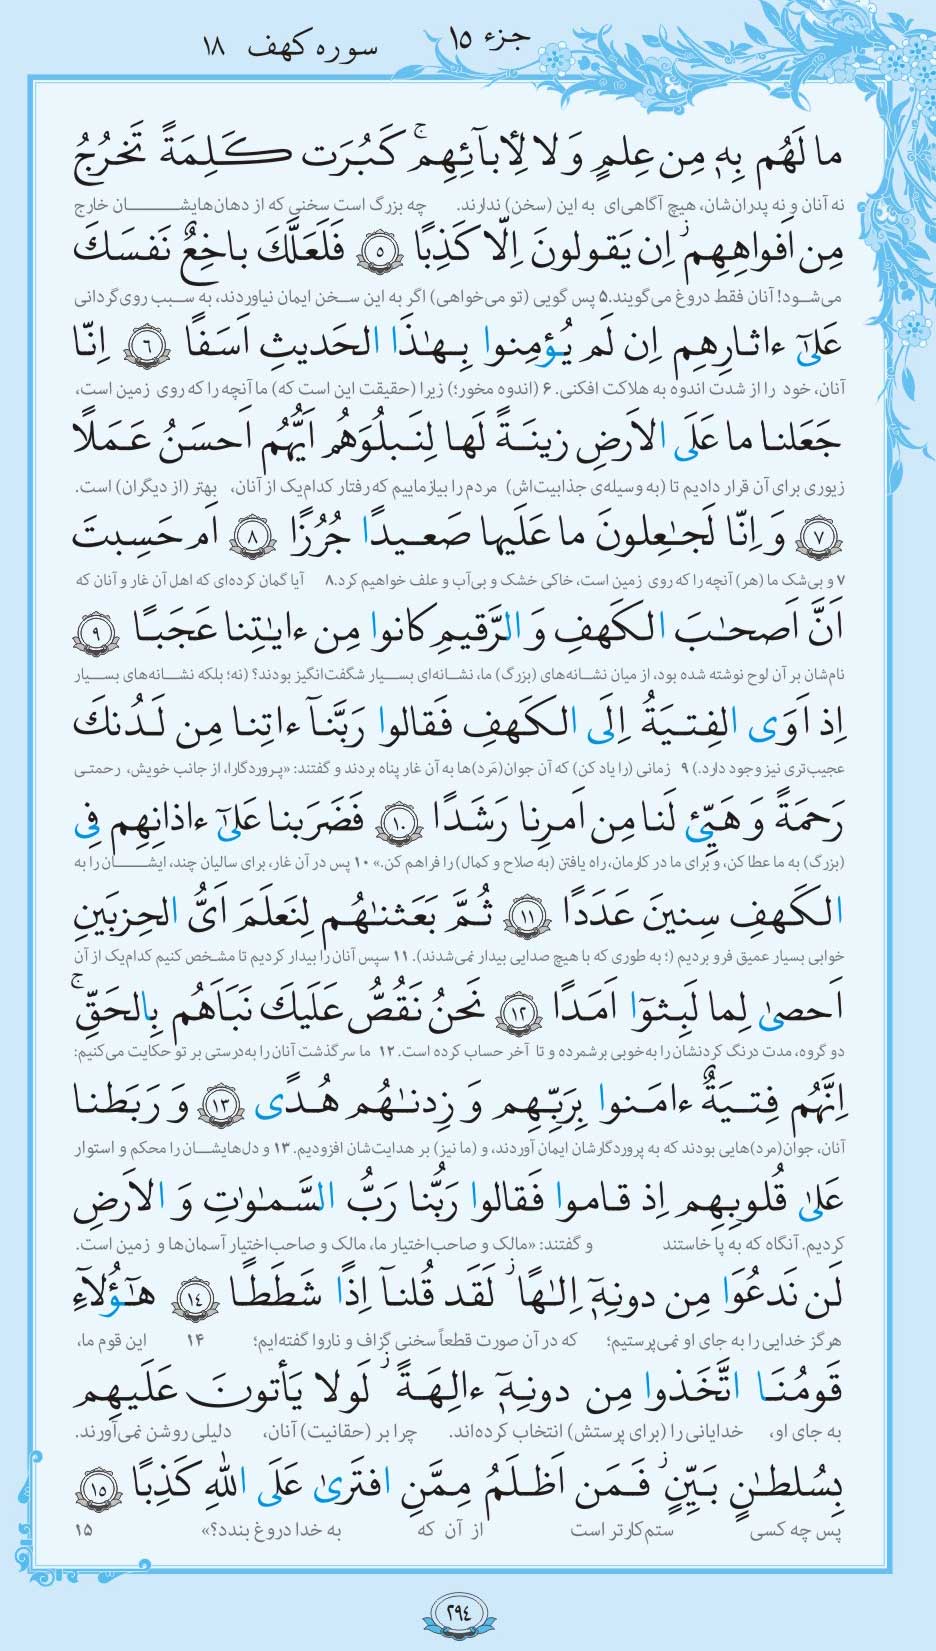 جزء ۱۵
سوره کهف ۱۸
ما لَهُم بِهٖ مِن عِلمٍ وَ لا لِأبآئِهِمۚ كَبُرَت كَلِمَةً تَخرُجُ
نه آنان و نه پدران‌شان، هیچ آگاهی‌ای به این (سخن) ندارند. چه بزرگ است سخنی که از دهان‌هایشان خارج
مِن اَفواهِهِمۚ اِن يَقولونَ اِلّا كَذِبًا ﴿٥﴾ فَلَعَلَّكَ باخِعٌ نَفسَكَ
می‌شود! آنان فقط دروغ می‌گویند.۵ پس گویی (تو می‌خواهی) اگر به این سخن ایمان نیاوردند، به سبب روی‌گردانی
عَلىٰٓ ءاثارِهِم اِن لَم يُؤمِنوا بِهـٰذَا الحَديثِ اَسَفًا ﴿٦﴾ اِنّا
آنان، خود را از شدت اندوه به هلاکت افکنی. ۶ (اندوه مخور؛) زیرا (حقیقت این است که) ما آنچه را که روی زمین است،
جَعَلنا ما عَلَى الاَرضِ زينَةً لَها لِنَبلُوَهُم اَيُّهُم اَحسَنُ عَمَلًا
زیوری برای آن قرار دادیم تا (به وسیله‌ی جذابیت‌اش) مردم را بیازماییم که رفتار کدام‌یک از آنان، بهتر (از دیگران) است.
﴿٧﴾ وَ اِنّا لَجـٰعِلونَ ما عَلَيها صَعيدًا جُرُزًا ﴿٨﴾ اَم حَسِبتَ
۷ و بی‌شک ما (هر) آنچه را که روی زمین است، خاکی خشک و بی‌آب و علف خواهیم کرد.۸ آیا گمان کرده‌ای که اهل آن غار و آنان که
اَنَّ اَصحـٰبَ الكَهفِ وَ الرَّقيمِ كانوا مِن ءايـٰتِنا عَجَبًا ﴿٩﴾
نام‌شان بر آن لوح نوشته شده بود، از میان نشانه‌های (بزرگ) ما، نشانه‌ای بسیار شگفت‌انگیز بودند؟ (نه؛ بلکه نشانه‌های بسیار
اِذ اَوَى الفِتيَةُ اِلَى الكَهفِ فَقالوا رَبَّنآ ءاتِنا مِن لَدُنكَ
عجیب‌تری نیز وجود دارد.) ۹ زمانی (را یاد کن) که آن جوان(مَرد)ها به آن غار پناه بردند و گفتند: «پروردگارا، از جانب خویش، رحمتی
رَحمَةً وَ هَيِّئ لَنا مِن اَمرِنا رَشَدًا ﴿١٠﴾ فَضَرَبنا عَلىٰٓ ءاذانِهِم فِى
(بزرگ) به ما عطا کن، و برای ما در کارمان، راه یافتن (به صلاح و کمال) را فراهم کن.» ۱۰ پس در آن غار، برای سالیان چند، ایشان را به
الكَهفِ سِنينَ عَدَدًا ﴿١١﴾ ثُمَّ بَعَثنـٰهُم لِنَعلَمَ اَىُّ الحِزبَينِ
خوابی بسیار عمیق فرو بردیم (؛ به طوری که با هیچ صدایی بیدار نمی‌شدند). ۱۱ سپس آنان را بیدار کردیم تا مشخص کنیم کدام‌یک از آن
اَحصىٰ لِما لَبِثوٓا اَمَدًا ﴿١٢﴾ نَحنُ نَقُصُّ عَلَيكَ نَبَاَهُم بِالحَقِّۚ
دو گروه، مدت درنگ کردنشان را به‌خوبی برشمرده و تا آخر حساب کرده است. ۱۲ ما سرگذشت آنان را به‌درستی بر تو حکایت می‌کنیم:
اِنَّهُم فِتيَةٌ ءامَنوا بِرَبِّهِم وَ زِدنـٰهُم هُدًى ﴿١٣﴾ وَ رَبَطنا
آنان، جوان(مرد)هایی بودند که به پروردگارشان ایمان آوردند، و (ما نیز) بر هدایت‌شان افزودیم. ۱۳ و دل‌هایشان را محکم و استوار
عَلىٰ قُلوبِهِم اِذ قاموا فَقالوا رَبُّنا رَبُّ السَّمـٰوٰتِ وَ الاَرضِ
کردیم. آنگاه که به پا خاستند و گفتند: «مالک و صاحب‌اختیار ما، مالک و صاحب‌اختیار آسمان‌ها و زمین است.
لَن نَدعُوَا مِن دونِهٖٓ اِلـٰهًاۖ لَقَد قُلنآ اِذًا شَطَطًا ﴿١٤﴾ هـٰٓؤُلآءِ
هرگز خدایی را به جای او نمی‌پرستیم؛ که در آن صورت قطعاً سخنی گزاف و ناروا گفته‌ایم؛ ۱۴ این قوم ما،
قَومُنَا اتَّخَذوا مِن دونِهٖٓ ءالِهَةًۖ لَولا يَأتونَ عَلَيهِم
به جای او، خدایانی را (برای پرستش) انتخاب کرده‌اند. چرا بر (حقانیت) آنان، دلیلی روشن نمی‌آورند.
بِسُلطـٰنٍ بَيِّنٍۖ فَمَن اَظلَمُ مِمَّنِ افتَرىٰ عَلَى اللهِ كَذِبًا ﴿١٥﴾
پس چه کسی ستم‌کارتر است از آن که به خدا دروغ بندد؟» ۱۵
۲۹۴